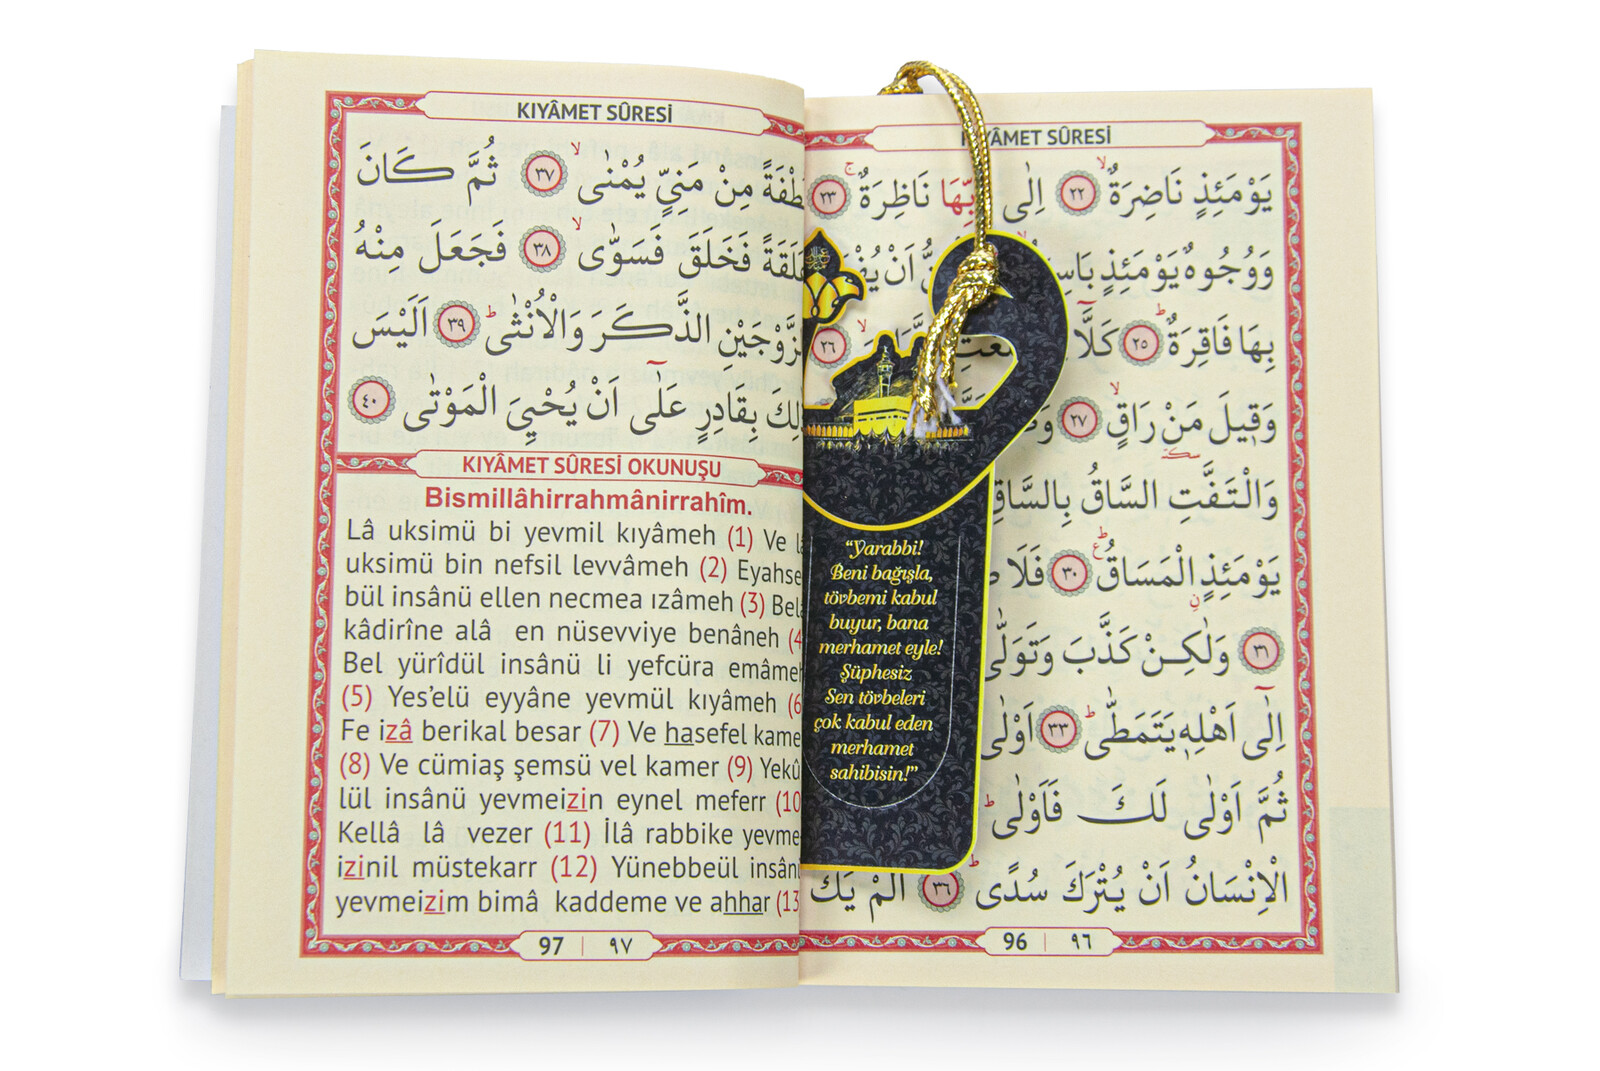 KIYÂMET SÛRESİ
يَوْمَئِذٍ نَاضِرَةٌۙ ٢٢ اِلٰى رَبِّهَا نَاظِرَةٌۚ ٢٣
وَوُجُوهٌ يَوْمَئِذٍ اَنْ
بِهَا فَاقِرَةٌۜ ٢٥ كَلَّٓا ٢٦
وَقِيلَ مَنْ رَاقٍۙ ٢٧
وَالْتَفَّتِ السَّاقُ بِالسَّاقِ
يَوْمَئِذٍ الْمَسَاقُۜ ٣٠ فَلَا
٣١ وَلٰكِنْ كَذَّبَ وَتَوَلّٰى
اِلٰٓى اَهْلِهٖ يَتَمَطّٰىۜ ٣٣ اَوْلٰى
ثُمَّ اَوْلٰى لَكَ فَاَوْلٰىۜ
الْاِنْسَانُ اَنْ يُتْرَكَ سُدًىۜ ٣٦ اَلَمْ يَكُ
96 | ٩٦
“Yarabbi!
Beni bağışla,
tövbemi kabul
buyur, bana
merhamet eyle!
Şüphesiz
Sen tövbeleri
çok kabul eden
merhamet
sahibisin!”
KIYÂMET SÛRESİ
نُطْفَةً مِنْ مَنِيٍّ يُمْنٰىۙ ٣٧ ثُمَّ كَانَ
عَلَقَةً فَخَلَقَ فَسَوّٰىۙ ٣٨ فَجَعَلَ مِنْهُ
الزَّوْجَيْنِ الذَّكَرَ وَالْاُنْثٰىۜ ٣٩ اَلَيْسَ
ذٰلِكَ بِقَادِرٍ عَلٰٓى اَنْ يُحْيِيَ الْمَوْتٰى ٤٠
KIYÂMET SÛRESİ OKUNUŞU
Bismillâhirrahmânirrahîm.
Lâ uksimü bi yevmil kıyâmeh (1) Ve lâ
uksimü bin nefsil levvâmeh (2) Eyahse
bül insânü ellen necmea ızâmeh (3) Belâ
kâdirîne alâ en nüsevviye benâneh (4
Bel yürîdül insânü li yefcüra emâmeh
(5) Yes’elü eyyâne yevmül kıyâmeh (6
Fe izâ berikal besar (7) Ve hasefel kame
(8) Ve cümiaş şemsü vel kamer (9) Yekû
lül insânü yevmeizin eynel meferr (10
Kellâ lâ vezer (11) İlâ rabbike yevme
izinil müstekarr (12) Yünebbeül insânü
yevmeizim bimâ kaddeme ve ahhar (13
97 | ٩٧